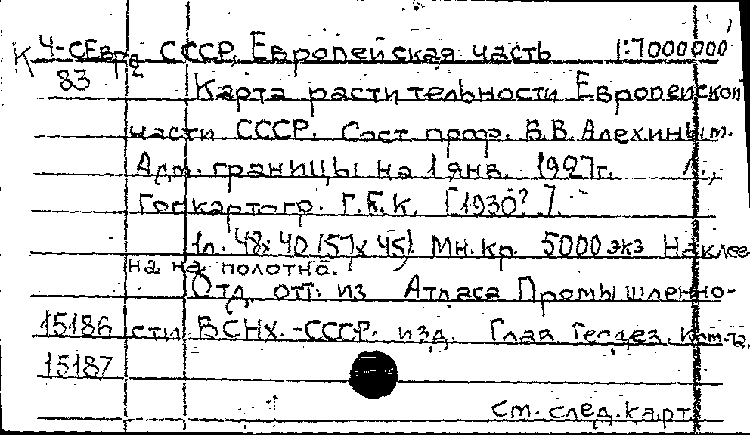 К Ч-СЕвре СССР, Европейская часть 1:7000000
83 Карта растительности Европейской
части СССР. Сост. проф. В.В. Алехиным.
Адм. границы на 1 янв. 1927г. Л.,
Госкартогр. Г.Г.К. [1930?].
1л. 48х40 (57х45) Мн.кр. 5000 экз Наклее
на на полотно.
Отд. отт. из Атласа Промышленно-
15186 сти ВСНХ.-СССР. изд. Глав Геодез. Ком-та.
15187
см. след. карт.